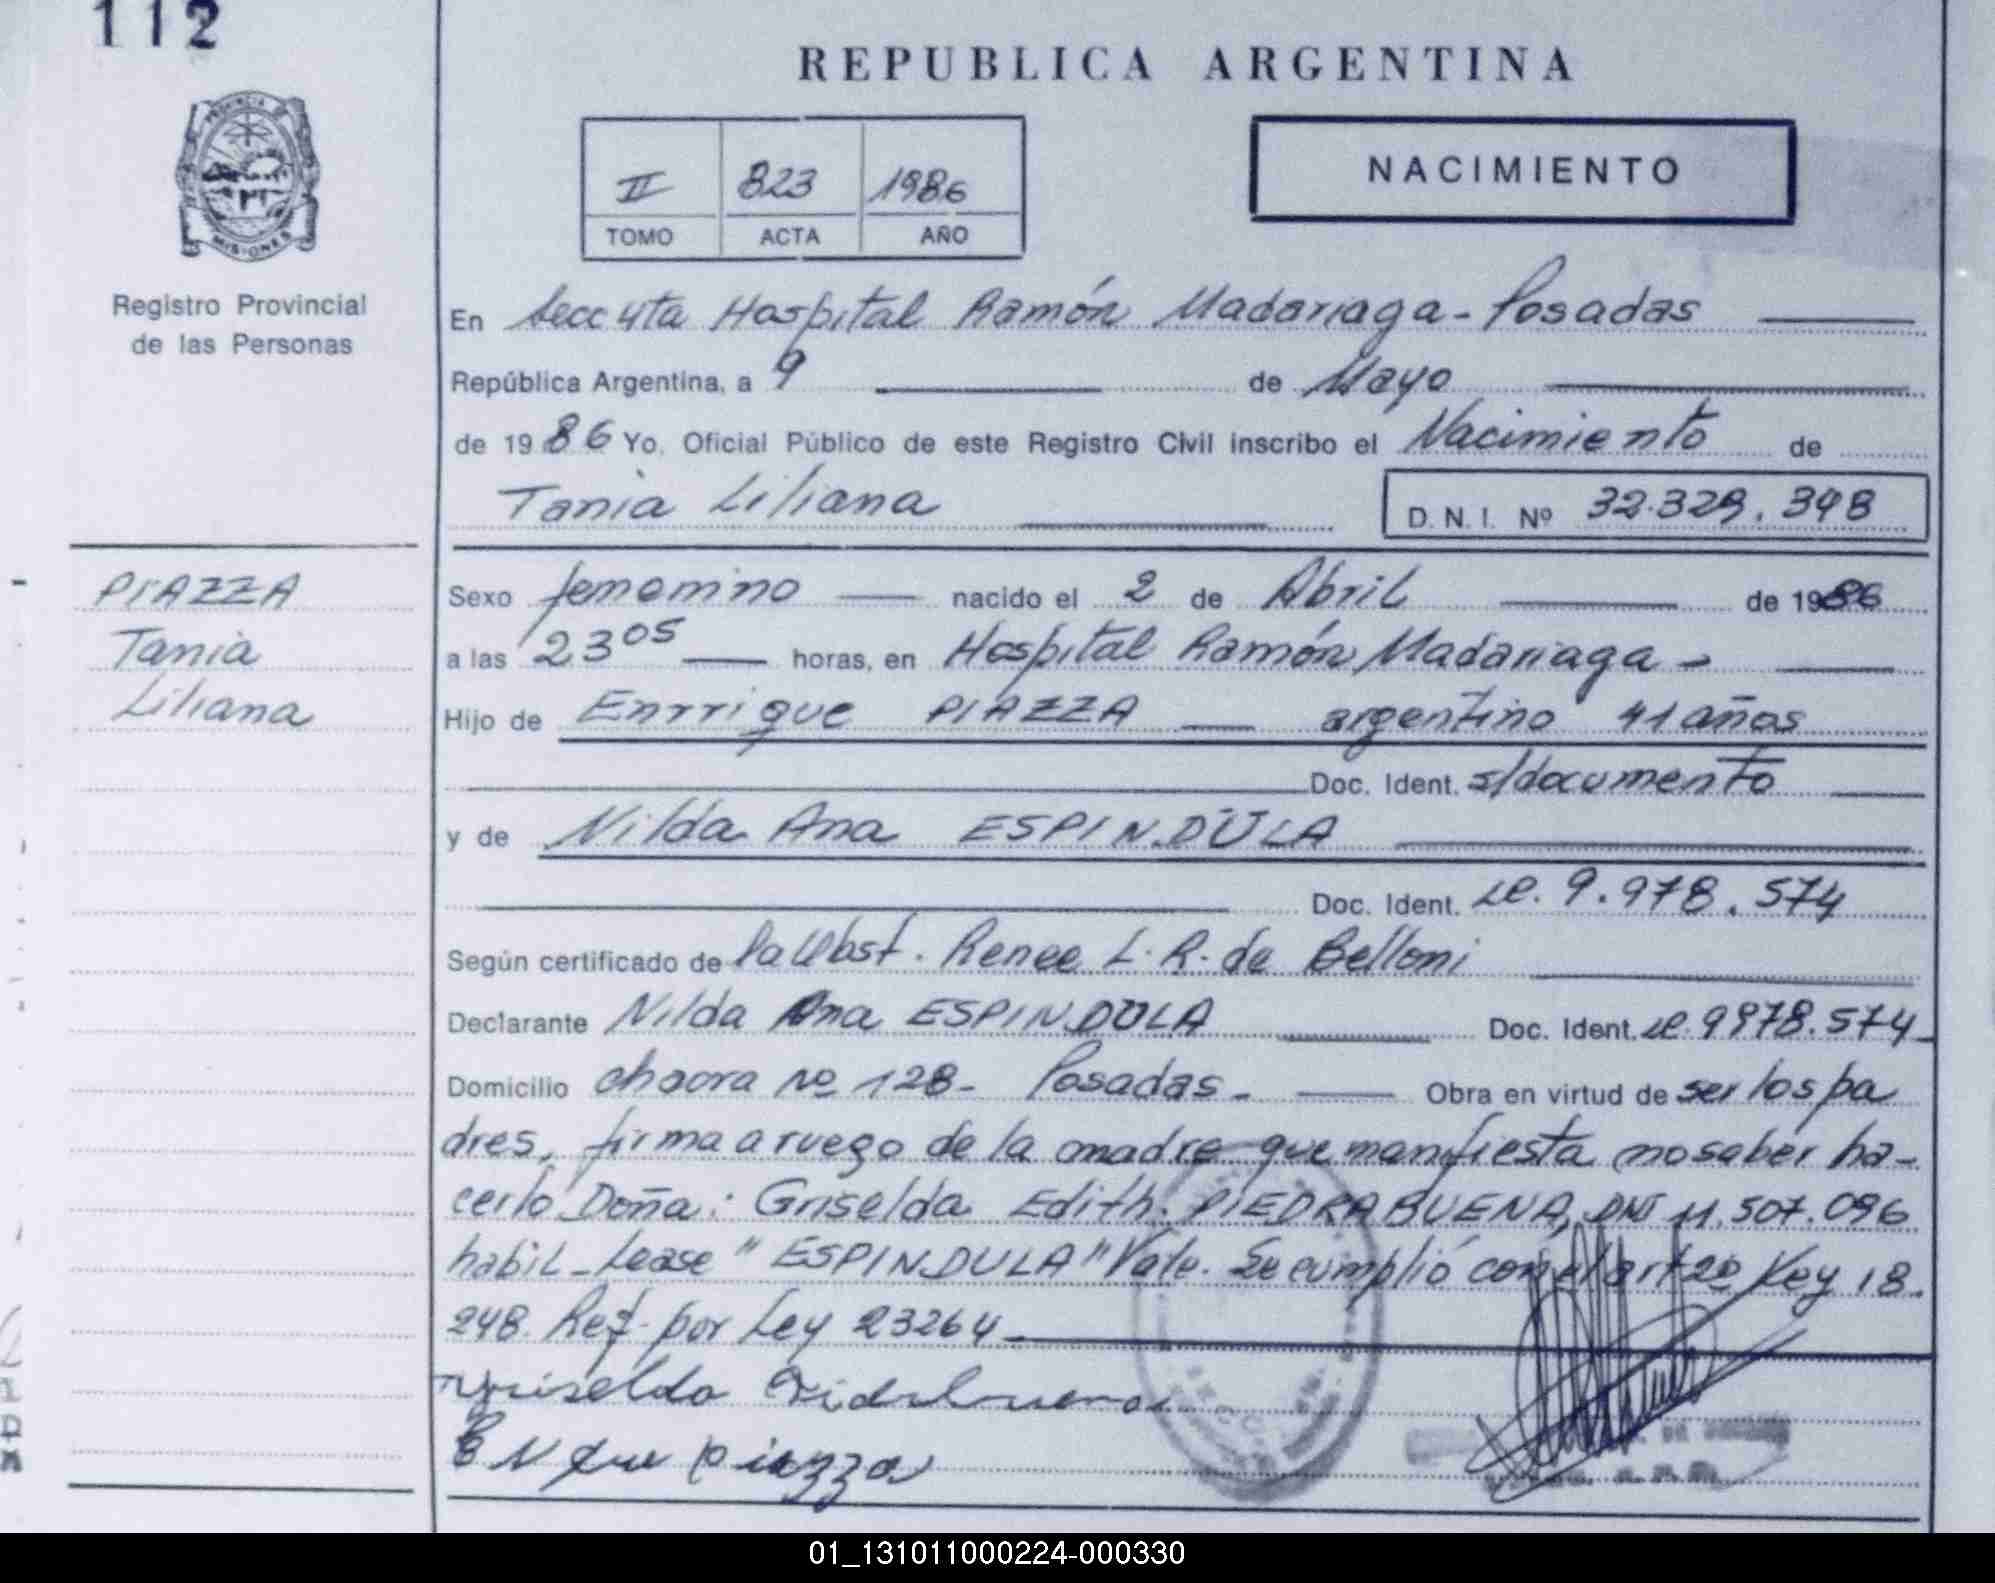 112
REPUBLICA ARGENTINA
PROVINCIA DE
MISIONES
II 823 1986
TOMO ACTA AÑO
NACIMIENTO
Registro Provincial
de las Personas
En Secc 4ta Hospital Ramón Madariaga - Posadas
República Argentina, a 9 de Mayo
de 1986 Yo, Oficial Público de este Registro Civil inscribo el Nacimiento de
Tania Liliana D. N. I. Nº 32.329.348
PIAZZA
Tania
Liliana
Sexo femenino nacido el 2 de Abril de 1986
a las 23 05 horas, en Hospital Ramón Madariaga -
Hijo de Enrrique PIAZZA argentino 41 años
Doc. Ident. s/documento
y de Nilda Ana ESPINDULA
Doc. Ident. LC. 9.978.574
Según certificado de Renee L. R. de Belloni
Declarante Nilda Ana ESPINDOLA Doc. Ident. LC. 9978.574
Domicilio chacra nº 128- Posadas. Obra en virtud de ser los pa
dres, firma a ruego de la madre que manifiesta no saber ha-
cerlo Doña: Griselda Edith. PIEDRABUENA, DNI 11.507.096
habil_ Lease "ESPINDULA" Vale. Se cumplió con el art 2º Ley 18.
248. Ref. por Ley 23264
Griselda Piedrabuena
Piazza
01_131011000224-000330